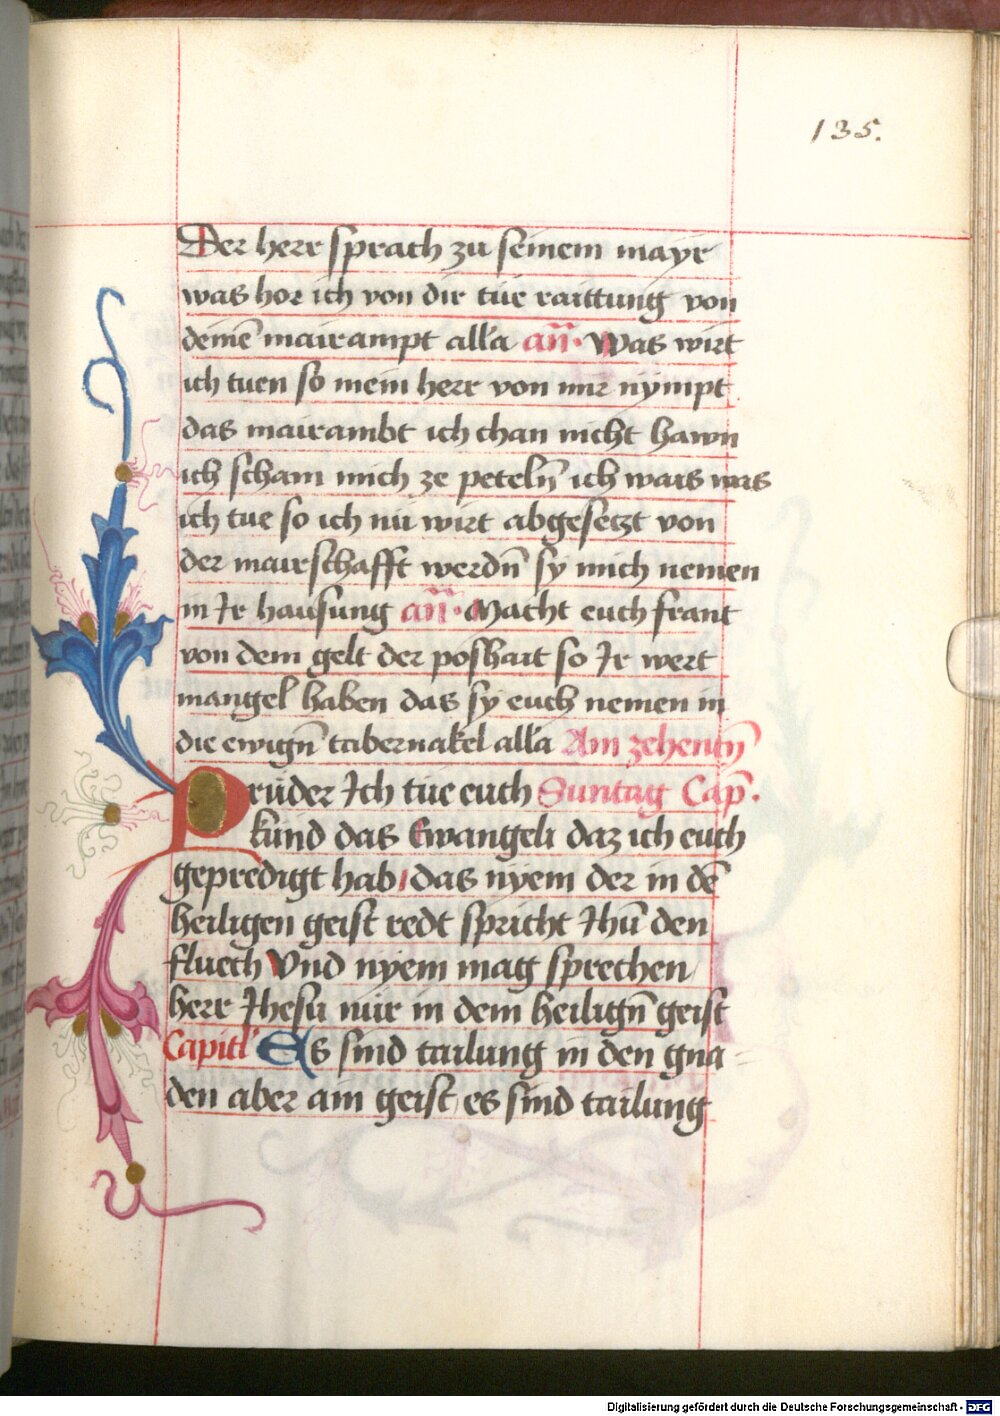 135.
Der herr sprach zu seinem mayr
was hor ich von dir tue raittung von
deinē mairampt alla añ. Was wirt
ich tuen so mein herr von mir nympt
das mairambt ich chan nicht hawn
ich scham mich ze petelñ ich wais was
ich tue so ich nu wirt abgesetzt von
der mairschafft werdñ sy mich nemen
in Ir hausung añ. Macht euch frant
von dem gelt der poshait so Ir wert
mangel haben das sy euch nemen in
die ewigñ tabernakel alla Am zehentñ
Brüder Ich tue euch Suntag Cap̄.
kund das Ewangeli daz ich euch
gepredigt hab das nyem der in dē
heiligen geist redt spricht Ihū den
fluech Vnd nyem mag sprechen
herr Ihesu nur in dem heiligñ geist
Capitl Es sind tailung in den gna
den aber ain geist es sind tailung
Digitalisierung gefördert durch die Deutsche Forschungsgemeinschaft - DFG